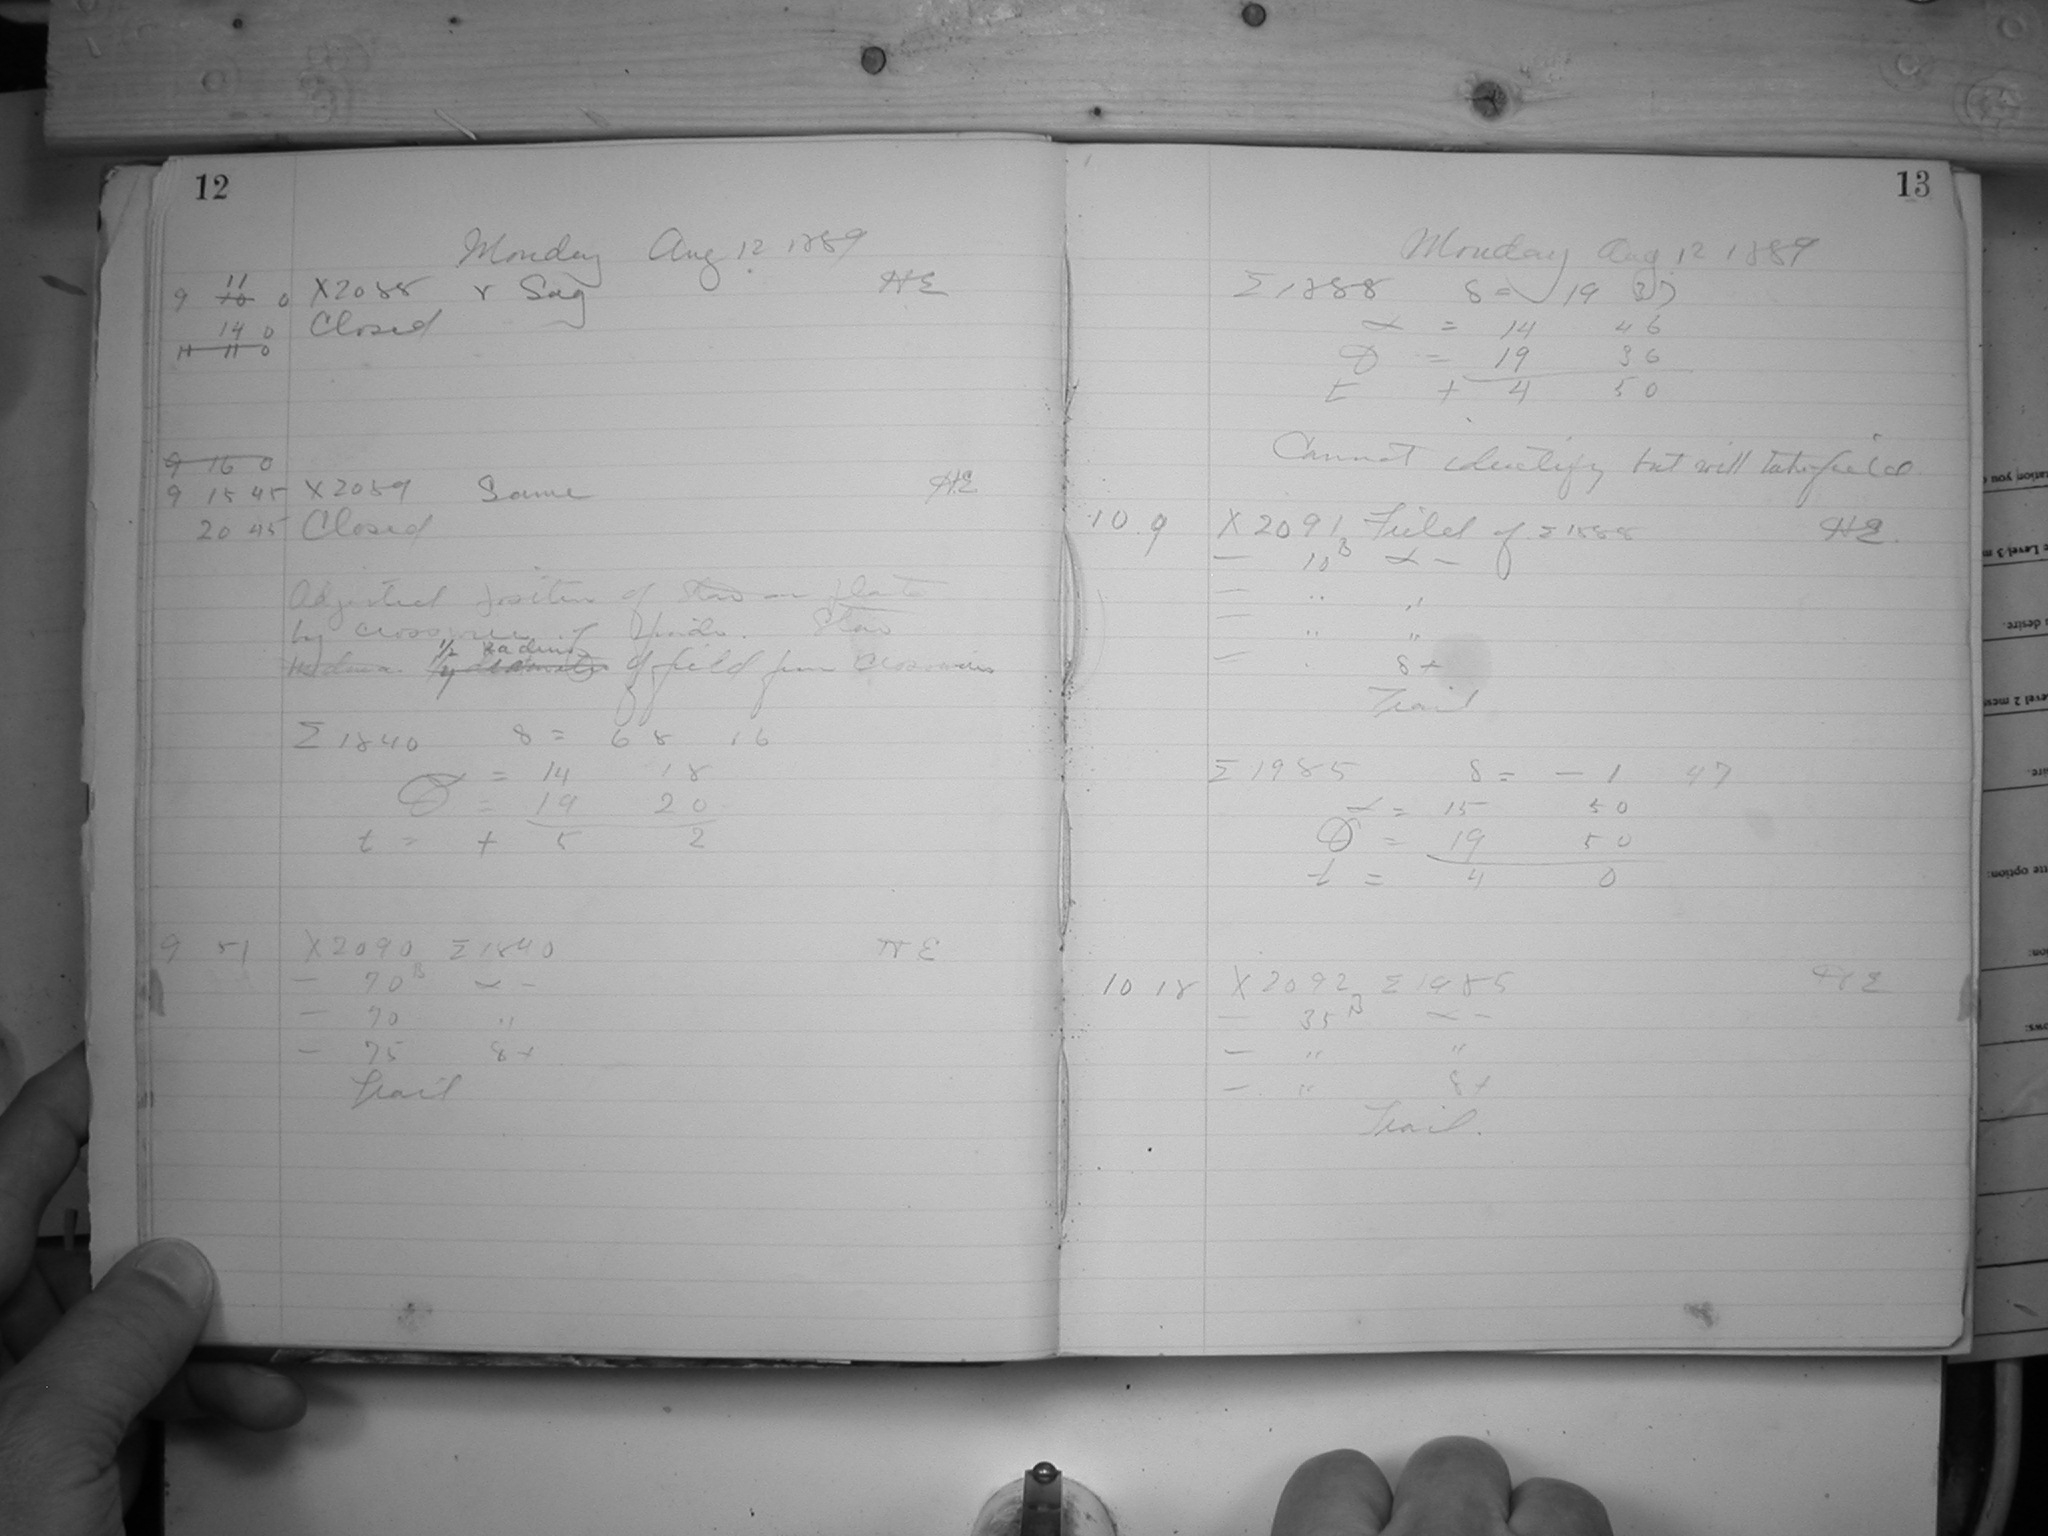 12
Monday Aug 12 1889
9 11 10 0 X2088 γ Sag HE
14 0 Closed
11 11 0
9 16 0
9 15 45 X2089 Same HE
20 45 Closed
Adjusted position of Star on plate
by crosswires of finder. Star
1/2 radius
of field from crosswires
Σ 1840 δ = 68 16
α = 14 18
θ = 19 20
t = + 5 2
9 51 X2090 Σ1840 HE
— 70 B α –
— 70 "
— 75 δ +
Trail
13
Monday Aug 12 1889
Σ1888 δ = 19 37
α = 14 46
θ = 19 36
t + 4 50
Cannot identify but will take field
10.9 X2091 Field of Σ1888 HE
— 10 B α –
— " "
— " "
— " δ +
Trail
Σ1985 δ = – 1 47
α = 15 50
θ = 19 50
t = 4 0
10 18 X2092 Σ1985 HE
— 35 B α –
— " "
— " δ +
Trail.